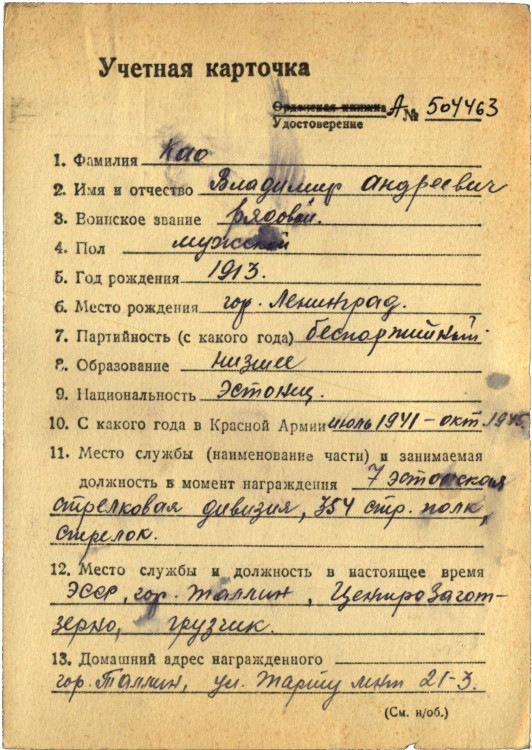 Учетная карточка
Орденская книжка А № 504463
Удостоверение
1. Фамилия Као
2. Имя и отчество Владимир Андреевич
3. Воинское звание рядовой.
4. Пол мужской
5. Год рождения 1913.
6. Место рождения гор. Ленинград.
7. Партийность (с какого года) беспартийный
8. Образование низшее
9. Национальность Эстонец.
10. С какого года в Красной Армии июль 1941 – окт. 1945.
11. Место службы (наименование части) и занимаемая
должность в момент награждения 7 Эстонская
стрелковая дивизия, 354 стр. полк,
стрелок.
12. Место службы и должность в настоящее время
ЭССР, гор. Таллин, ЦентроЗагот-
зерно, грузчик.
13. Домашний адрес награжденного
гор. Таллин, ул. Тарту мнт 21-3.
(См. н/об.)